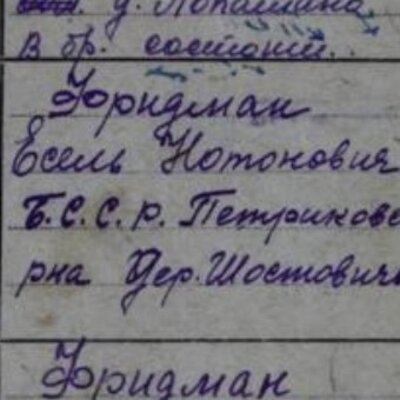 д. Лопатино
в бр. состоит.
Фридман
Есель Нотоновия
Б.С.С.Р. Петриковс
рна Дер. Шостовичи
Фридман